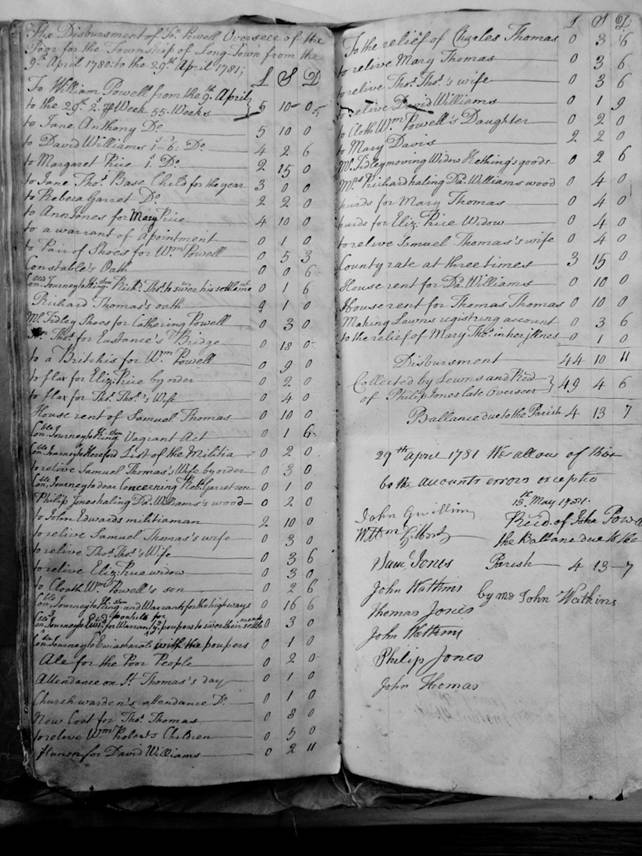 The Disbursment of Jno. Powell Overseer of the
Poor for the Township of Long Town from the
9th April 1780 to the 29th April 1781;
£ S D
To William Powell from the 9th April
to the 29th Week 55 Weeks 5 10 0
to Jane Anthony Do 5 10 0
to David Williams Do 4 2 6
to Margaret Price Do 2 15 0
to Jane Thos Base Child for the year 3 0 0
to Rebera Garret Do 2 2 0
to Ann Jones for Mary Price 4 10 0
to a warrant of apointment 0 1 0
to Pair of Shoes for Wm Powell 0 5 3
Constable's Oath 0 0 6
on Journey to 0 1 6
Richard Thomas's oath 0 1 0
Mr Fidley Shoes for Catherine Powell 0 3 0
Thos for Eustance's Bridge 0 18 0
to a Britchis for Wm Powell 0 9 0
to flax for Eliz: Price by order 0 2 0
to flax for Thos Thos's Wife 0 4 0
House rent of Samuel Thomas 0 10 0
on Journey to Vagrant Act 0 1 6
on Journey to List of the Militia 0 2 0
to relive Samuel Thomas's Wife by order 0 3 0
on Journey to concerning
Philip Jones haling Dd Williams's wood 0 2 0
to John Edwards militiaman 2 10 0
to relive Samuel Thomas's wife 0 3 0
to relive Thos Thos's Wife 0 3 6
to relive Eliz: Price widow 0 3 0
to Cloath Wm Powell's son 0 2 6
on Journey to and Warrant for the high ways 0 16 6
on Journey for Warrant poupers to 0 3 0
on Journey to with the poupers 0 1 0
Ale for the Poor People 0 2 0
Attendance on St Thomas's day 0 1 0
Church warden's attendance Do 0 1 0
New Coat for Thos Thomas 0 8 0
to relive Wm Robert's Children 0 5 0
for David Williams 0 2 11
£ S D
To the relief of Charles Thomas 0 3 6
to relive Mary Thomas 0 3 6
to relive Thos Thos's wife 0 3 6
to relive David Williams 0 1 9
to Cloth Wm Powell's Daughter 0 2 0
to Mary Davis 2 2 0
Mr Fidley moving Widow goods 0 2 6
Mr Prichard haling Dd Williams wood 0 4 0
for Mary Thomas 0 4 0
for Eliz: Price Widow 0 4 0
to relive Samuel Thomas's wife 0 4 0
County rate at three times 3 15 0
House rent for Dd Williams 0 10 0
House rent for Thomas Thomas 0 10 0
Making Lewns registring account 0 3 6
to the relief of Mary Thos in her illness 0 1 0
Disbursment 44 10 11
Collected by Lewns and Recd
of Philip Jones late Overseer 49 4 6
Ballance due to the Parish 4 13 7
29th april 1781 We allow of this
to the accounts errors exceptio
13th May 1781.
John Gwillim Recd of John Powell
Wm Gilbert the Ballance due to the
Saml Jones Parish 4 13 7
John Watkins by me John Watkins
Thomas Jones
John Watkins
Philip Jones
John Thomas